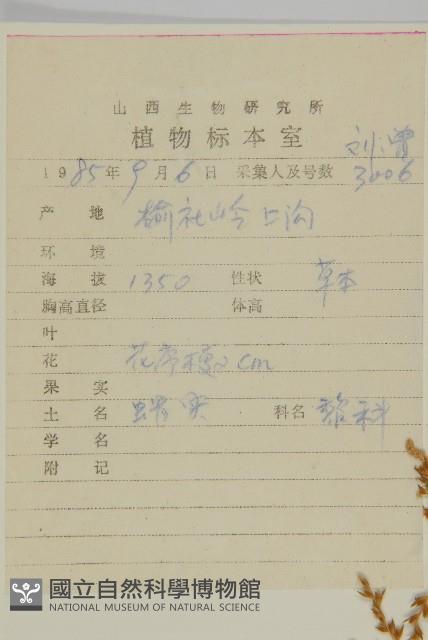 山西生物研究所
植物标本室
1985年9月6日 采集人及号数 刘 曾 3006
产地 榆社岭上沟
环境
海拔 1350 性状 草本
胸高直径 体高
叶
花 花序穗 cm
果实
土名 科名 科
学名
附记
國立自然科學博物館
NATIONAL MUSEUM OF NATURAL SCIENCE